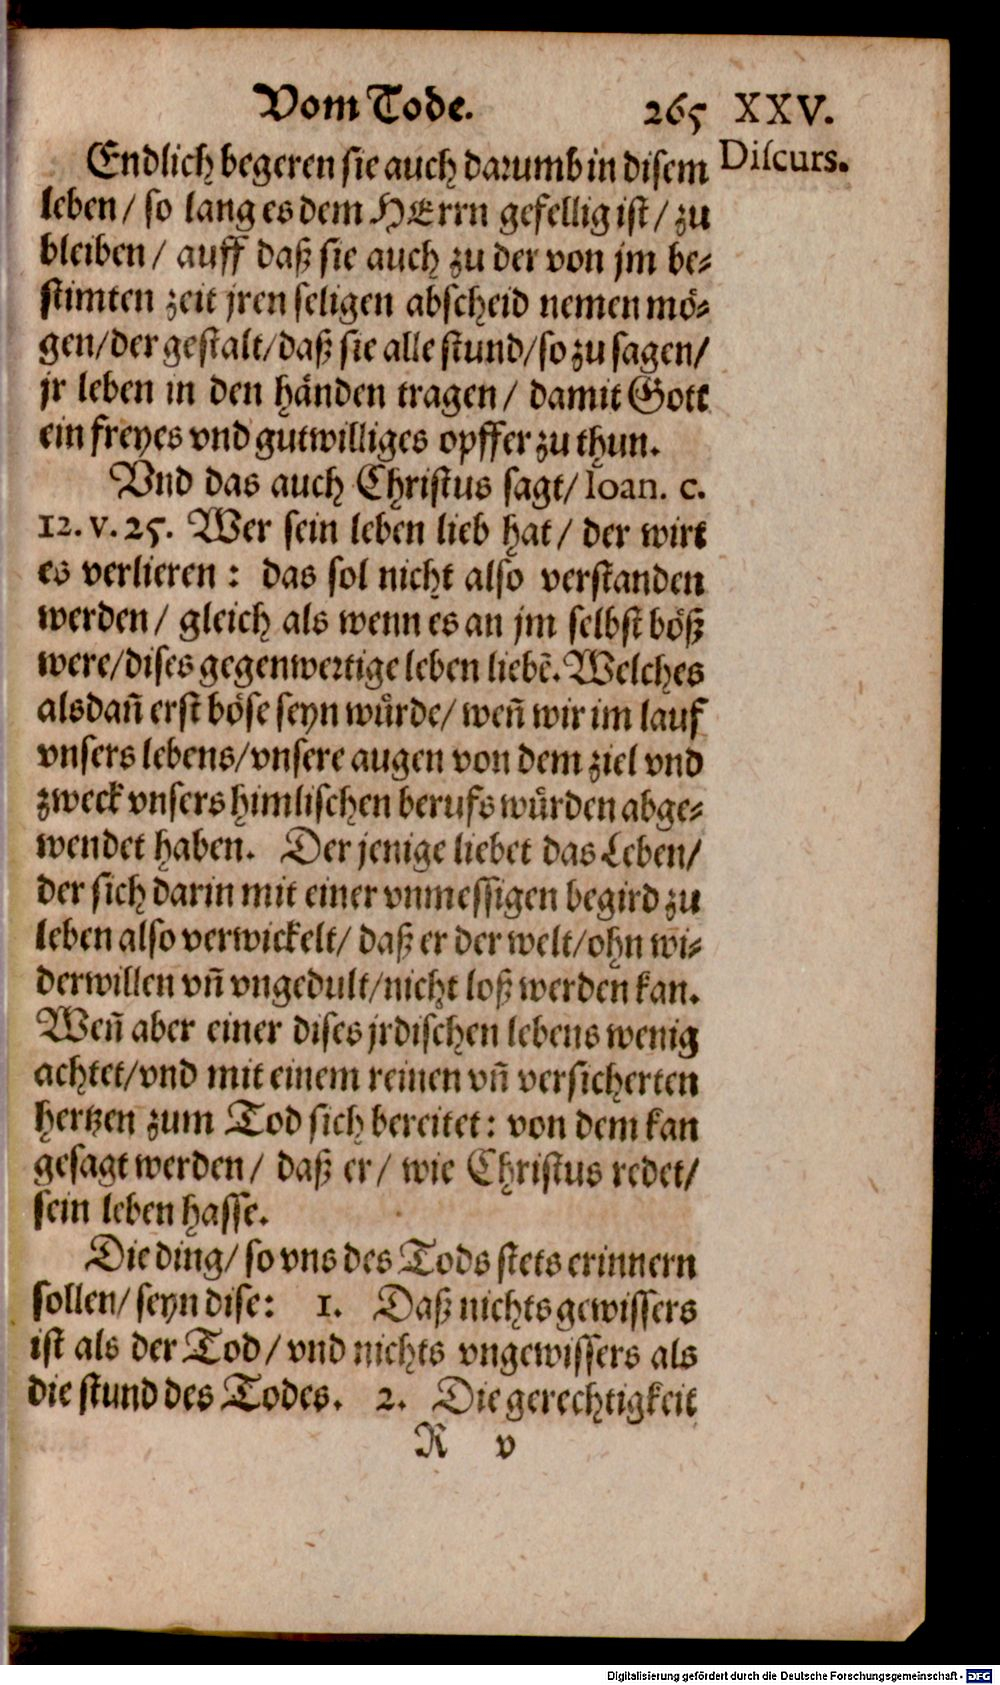 Vom Tode. 265 XXV.
Discurs.
Endlich begeren sie auch darumb in disem
leben / so lang es dem HErrn gefellig ist / zu
bleiben / auff daß sie auch zu der von jm be-
stimten zeit jren seligen abscheid nemen mö-
gen/der gestalt/daß sie alle stund/so zu sagen/
jr leben in den händen tragen / damit Gott
ein freyes vnd gutwilliges opffer zu thun.
Vnd das auch Christus sagt/ Ioan. c.
12. v. 25. Wer sein leben lieb hat / der wirt
es verlieren : das sol nicht also verstanden
werden / gleich als wenn es an jm selbst böß
were/dises gegenwertige leben liebē. Welches
alsdañ erst böse seyn wuͤrde/ weñ wir im lauf
vnsers lebens/vnsere augen von dem ziel vnd
zweck vnsers himlischen berufs wuͤrden abge-
wendet haben. Der jenige liebet das Leben/
der sich darin mit einer vnmessigen begird zu
leben also verwickelt/ daß er der welt/ohn wi-
derwillen vñ vngedult/nicht loß werden kan.
Weñ aber einer dises jrdischen lebens wenig
achtet/vnd mit einem reinen vñ versicherten
hertzen zum Tod sich bereitet: von dem kan
gesagt werden / daß er / wie Christus redet/
sein leben hasse.
Die ding/ so vns des Tods stets erinnern
sollen/ seyn dise: 1. Daß nichts gewissers
ist als der Tod / vnd nichts vngewissers als
die stund des Todes. 2. Die gerechtigkeit
R v
Digitalisierung gefördert durch die Deutsche Forschungsgemeinschaft - DFG